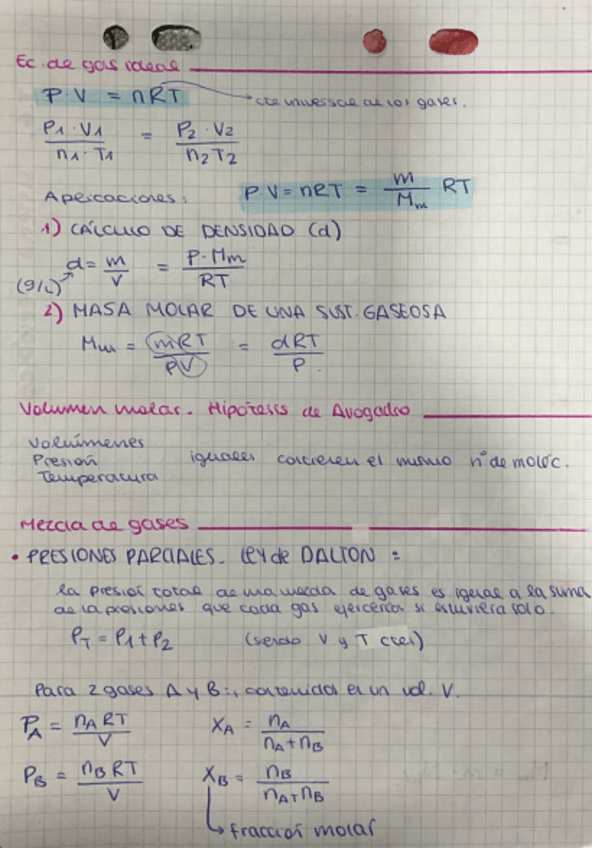 Ec. de gas ideal
P·V = nRT → cte universal de los gases.
P1·V1 / n1·T1 = P2·V2 / n2T2
Aplicaciones: P·V = nRT = m/Mm RT
1) CÁLCULO DE DENSIDAD (d)
(g/L) d = m/V = P·Mm/RT
2) MASA MOLAR DE UNA SUST. GASEOSA
Mm = mRT/PV = dRT/P.
Volumen molar. Hipótesis de Avogadro
Volúmenes
Presión iguales contienen el mismo nº de moléc.
Temperatura
Mezcla de gases
• PRESIONES PARCIALES. LEY de DALTON:
La presión total de una mezcla de gases es igual a la suma
de la presiones que cada gas ejercería si estuviera solo.
PT = P1 + P2 (siendo V y T ctes)
Para 2 gases A y B:, contenidos en un vol. V.
PA = nART/V XA = nA/nA+nB
PB = nBRT/V XB = nB/nA+nB
↳ fracción molar